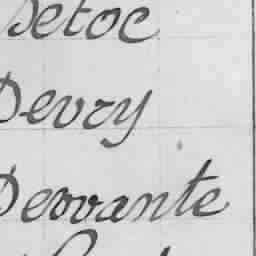 Detoc
Devry
Dewante